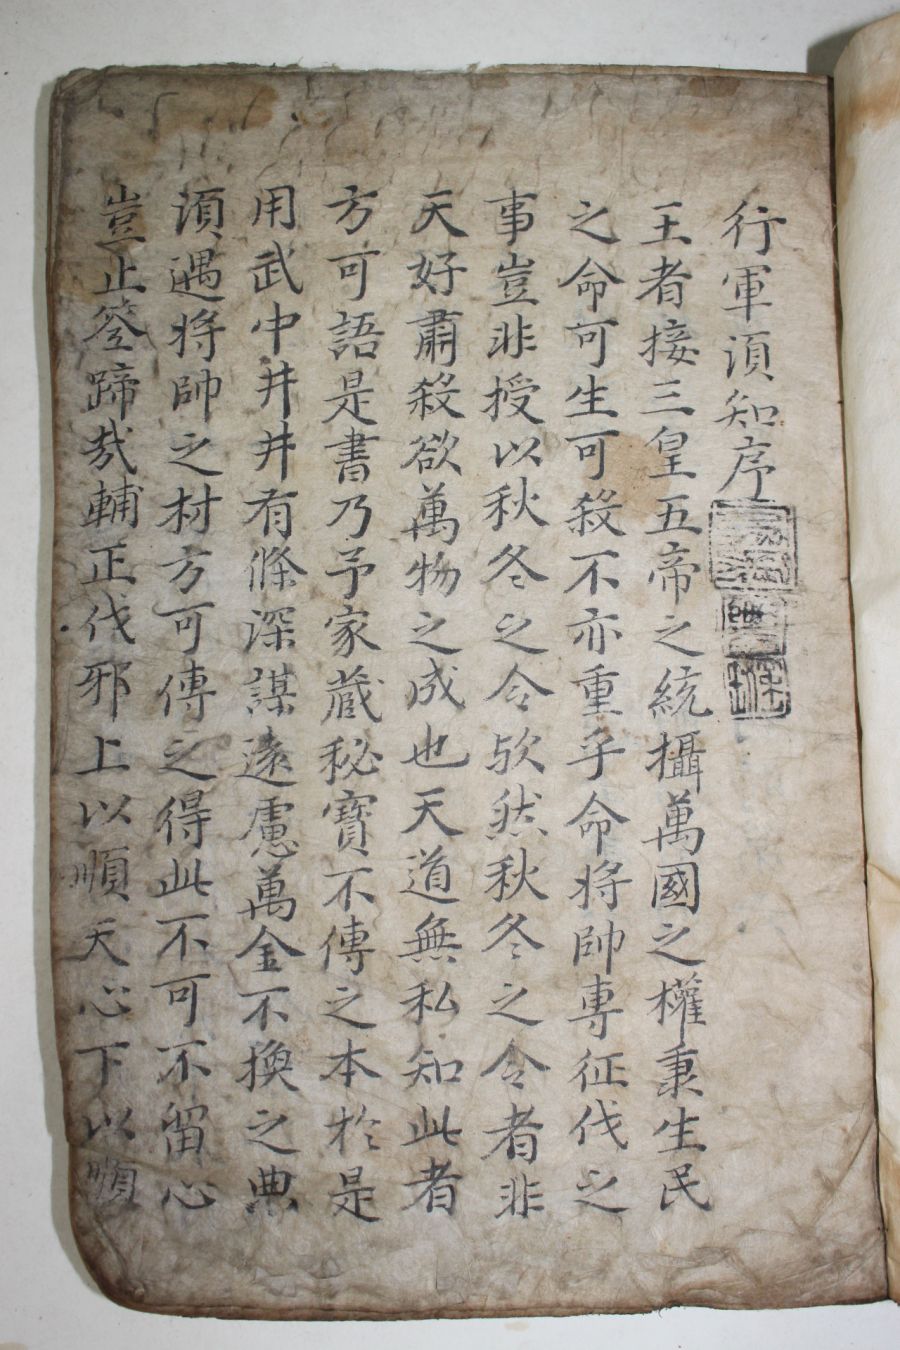 行軍須知序
王者接三皇五帝之統攝萬國之權秉生民
之命可生可殺不亦重乎命將帥專征伐之
事豈非授以秋冬之令歟然秋冬之令者非
天好肅殺欲萬物之成也天道無私知此者
方可語是書乃予家藏秘寶不傳之本於是
用武中井井有條深謀遠慮萬金不換之典
須遇將帥之材方可傳之得此不可不留心
豈止筌蹄哉輔正伐邪上以順天心下以順